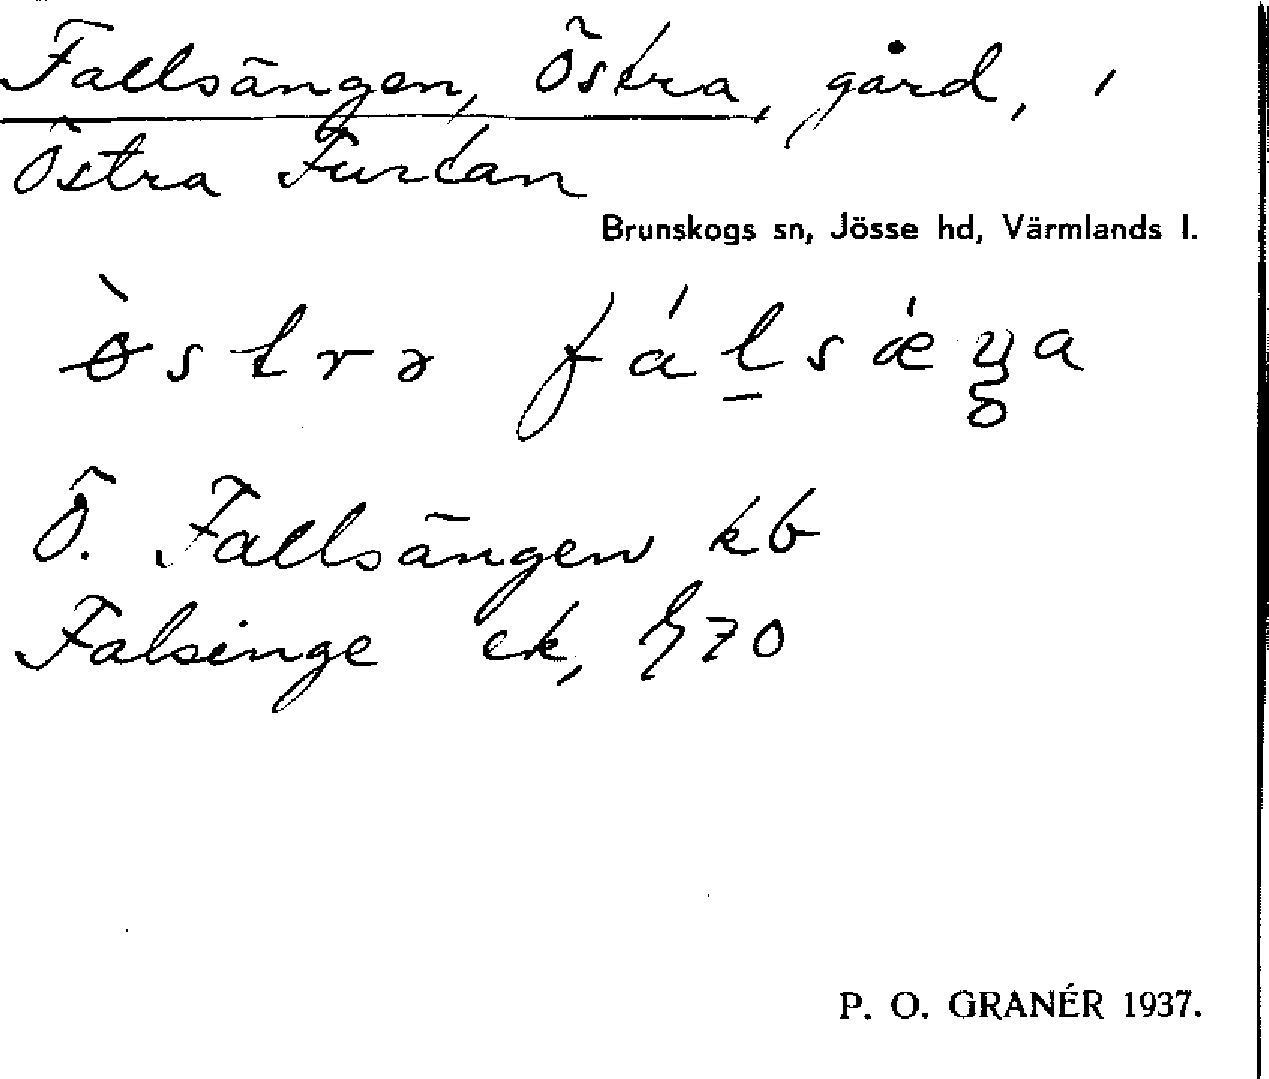 Fallsängen, Östra, gård, i
Östra Furtan
Brunskogs sn, Jösse hd, Värmlands l.
Ö. Fallsängen kb
Falsinge ek,
P. O. GRANÉR 1937.